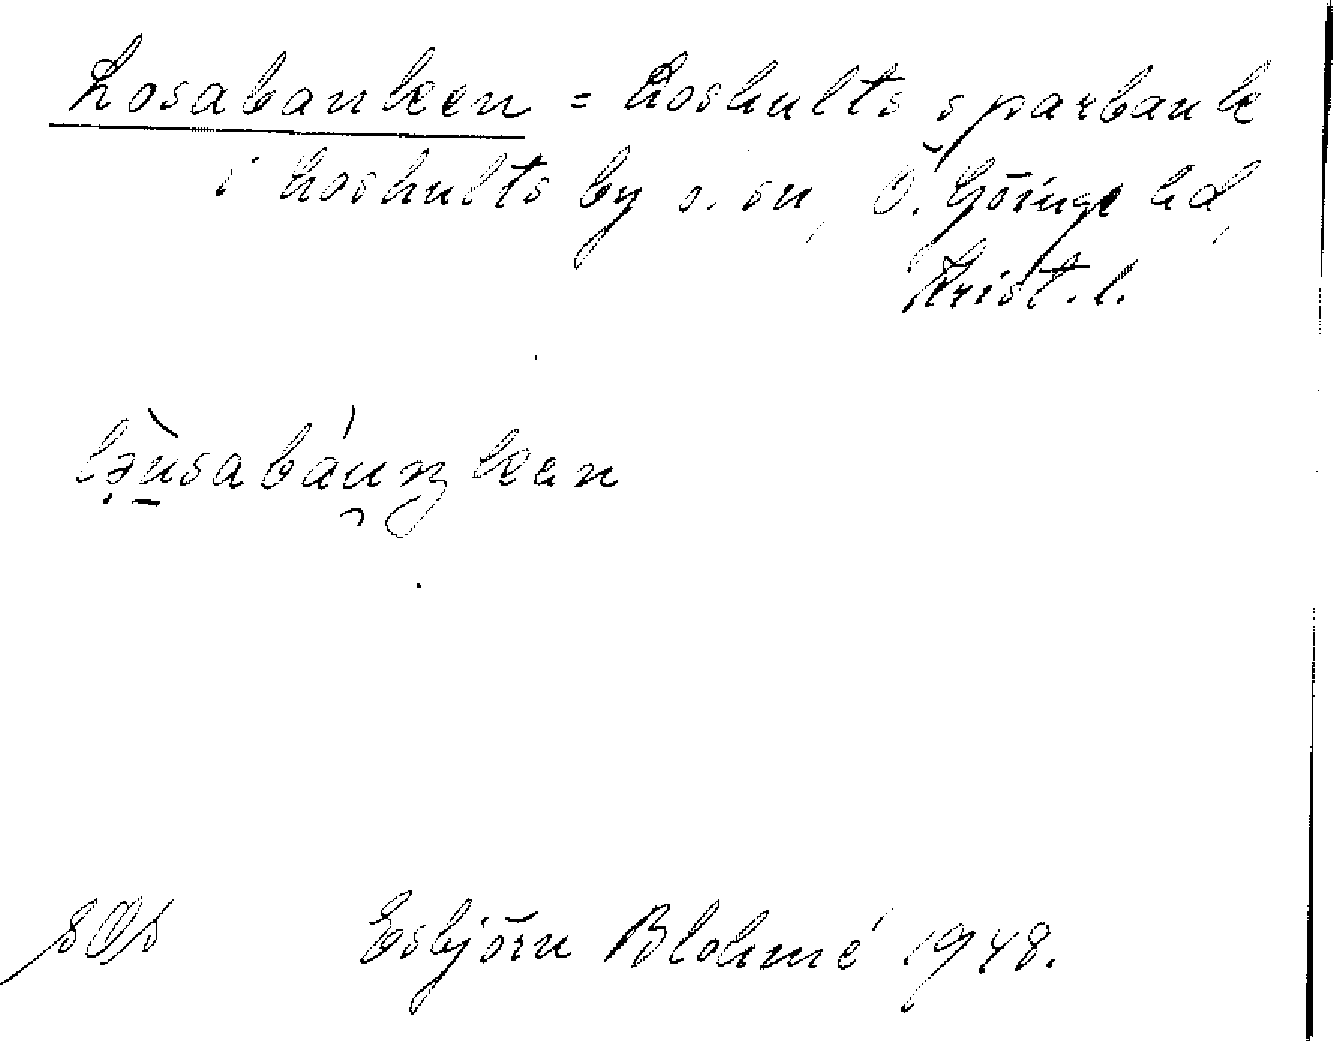 Losabanken = Loshults sparbank
i Loshults by o. sn, Ö. Göinge hd,
Krist. l.
Esbjörn Blohmé 1948.